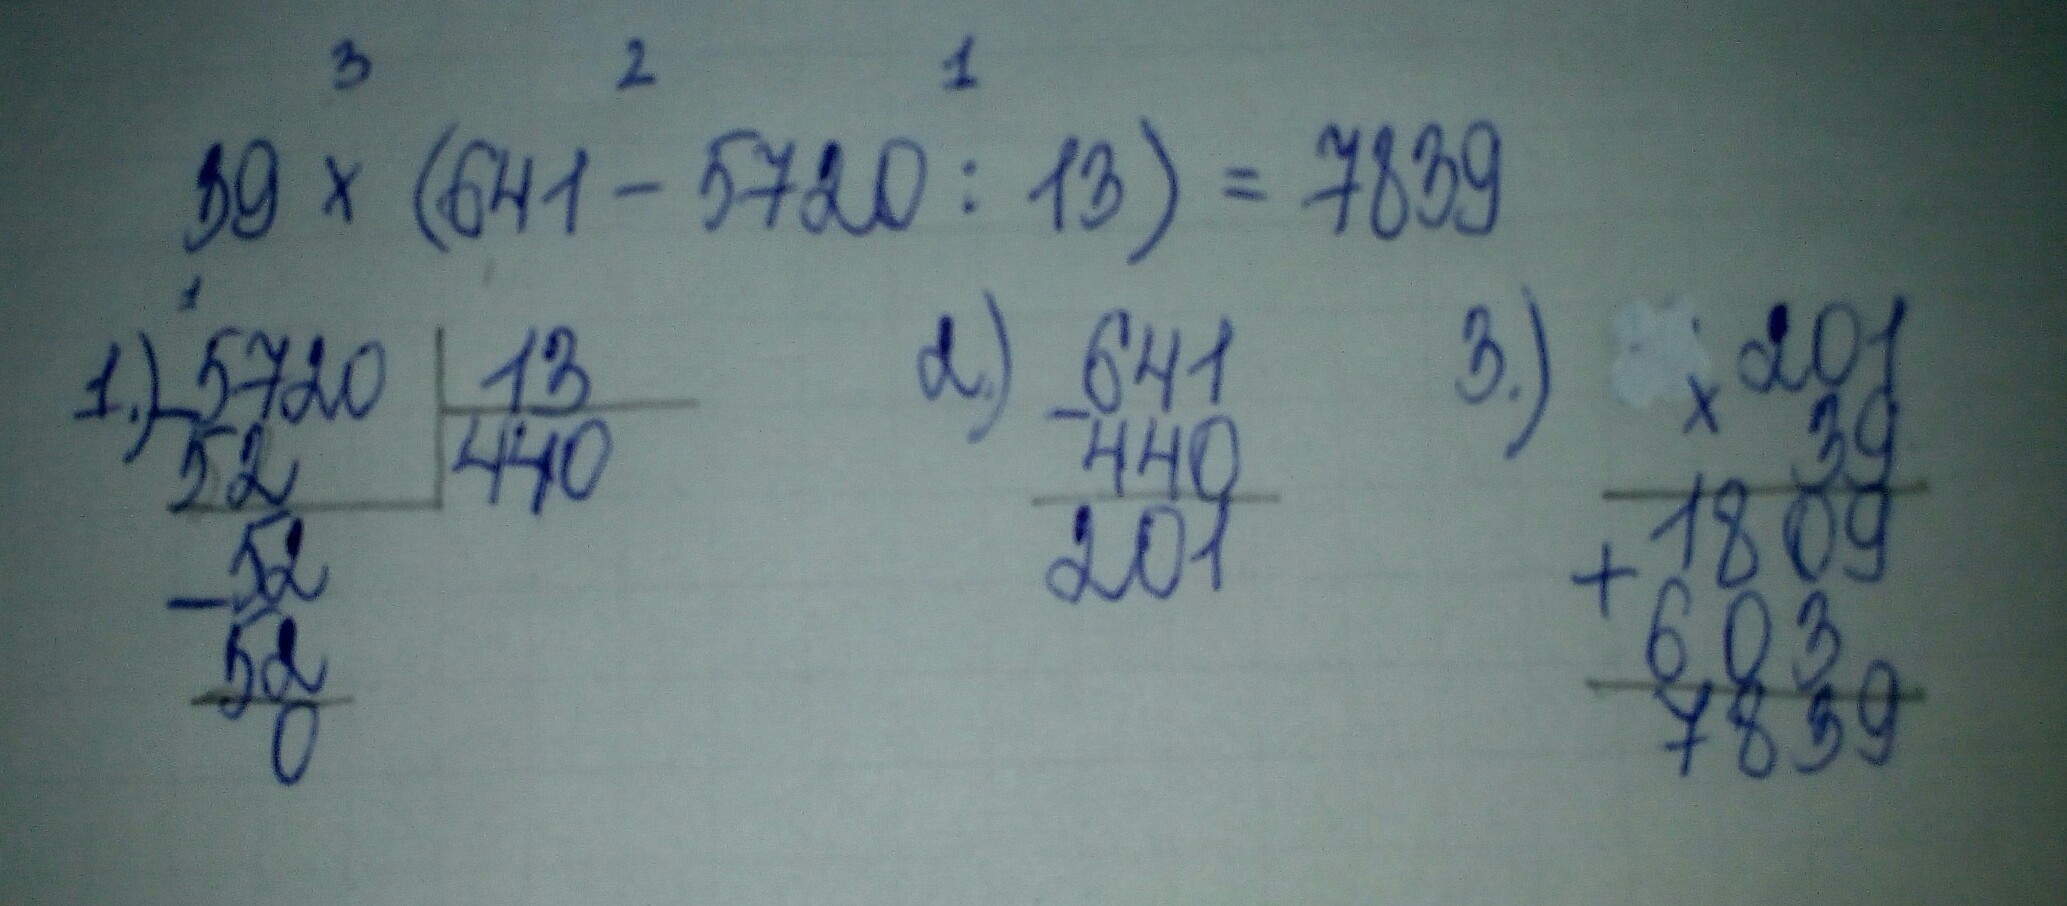 3 2 1
39 x (641 - 5720 : 13) = 7839
1
1.) - 5720 | 13
52 | 440
- 52
52
0
2.) - 641
440
201
3.) x 201
39
1809
+ 603
7839